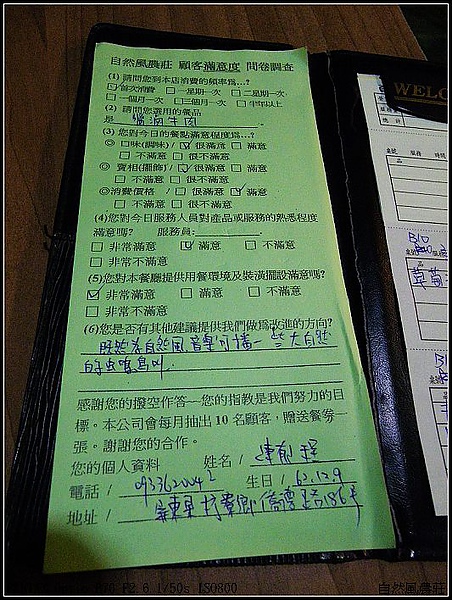 自然風農莊 顧客滿意度 問卷調查
(1) 請問您到本店消費的頻率爲…?
☑首次消費 □一星期一次 □二星期一次
□一個月一次 □三個月一次 □半年以上
(2) 請問您選用的餐品
是 牛肉
(3) 您對今日的餐點滿意程度爲…?
◎ 口味(調味) / ☑很滿意 □滿意
□不滿意 □很不滿意
◎ 賣相(擺飾) / ☑很滿意 □滿意
□不滿意 □很不滿意
◎消費價格 / □很滿意 ☑滿意
□不滿意 □很不滿意
(4)您對今日服務人員對產品或服務的熟悉程度
滿意嗎? 服務員:
□ 非常滿意 ☑ 滿意 □ 不滿意
□ 非常不滿意
(5)您對本餐廳提供用餐環境及裝潢擺設滿意嗎?
☑ 非常滿意 □ 滿意 □ 不滿意
□ 非常不滿意
(6)您是否有其他建議提供我們做爲改進的方向?
既然為自然風音樂可播一些大自然
的虫鳴鳥叫.
感謝您的撥空作答─您的指教是我們努力的目
標。本公司會每月抽出 10 名顧客，贈送餐券一
張。謝謝您的合作。
您的個人資料 姓名 / 陳
電話 / 生日 / 62.12.9
地址 / 屏東縣竹田鄉
WELCO
總計
桌號 服務 時間
品
B10
桌號
品
草莓
F2.6 1/50s ISO800
自然風農莊